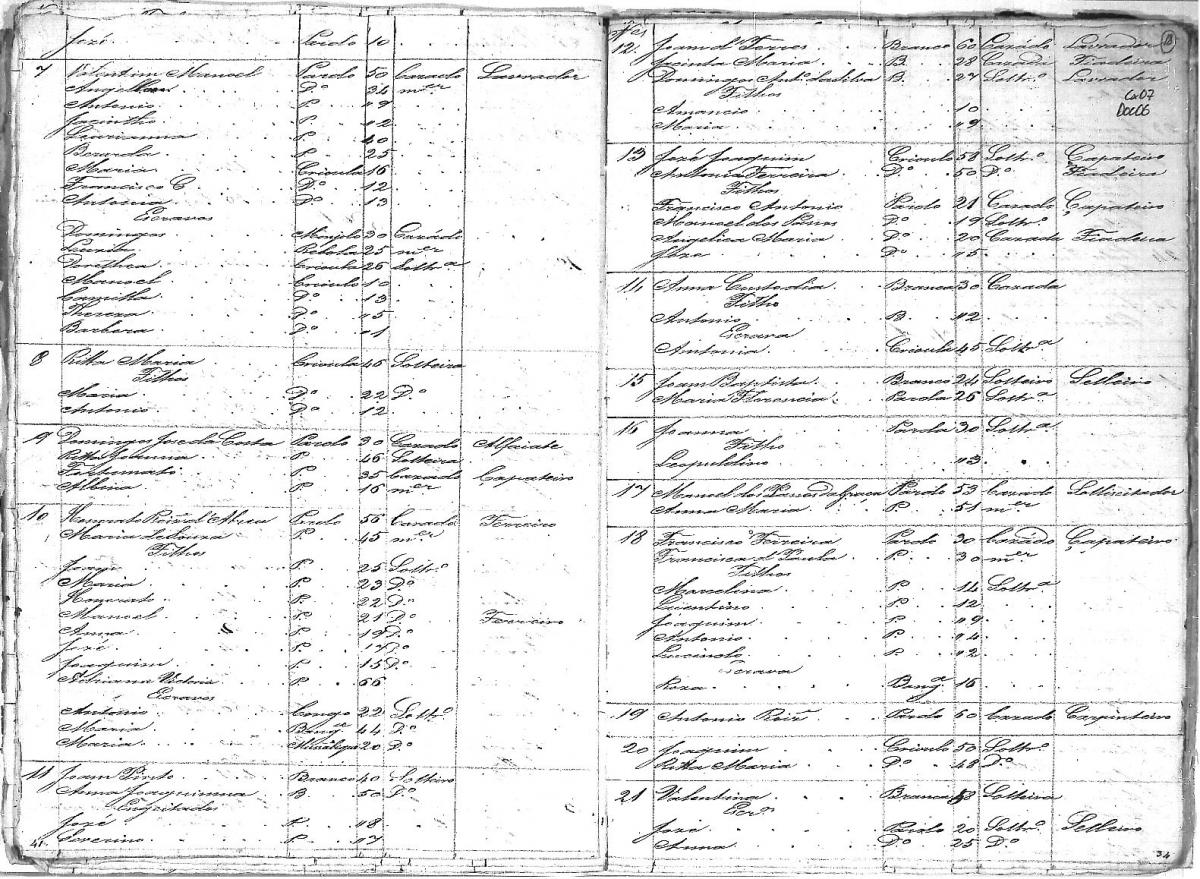 Jozé Pardo 10
7 Valentim Manoel Pardo 50 Cazado Lavrador
Angelica D.º 34 m.er
Antonio P. 09
Jacintho P. 02
P. 40
P. 25
Maria Crioula 16
Francisco C D.º 12
Antonia D.º 13
Escravos
Domingos 30 Cazado
25 m.er
Dorothea Crioula 26 Soltr.ª
Manoel Crioulo 10
Camilla D.º 13
Thereza D.º 05
Barbara D.º 01
8 Ritta Maria Crioula 45 Solteira
Filhos
Maria D.º 22 D.º
Antonio D.º 12
9 Domingos Joze da Costa Pardo 30 Cazado Alfaiate
Ritta P. 46 Solteira
Fortunato P. 35 Cazado Çapateiro
Albina P. 16 m.er
10 Honorato d'Abreu Pardo 56 Cazado Ferreiro
Maria P. 45 m.er
Filhos
P. 25 Soltr.º
Maria P. 23 D.º
Honorato P. 22 D.º
Manoel P. 21 D.º Ferreiro
Anna P. 19 D.º
Jozé P. 17 D.º
Joaquim P. 15 D.º
Adriana Victoria P. 66
Escravos
Antonio Congo 22 Soltr.º
Maria Beng.ª 44 D.º
Maria 20 D.º
11 Joam Pinto Branco 40 Solteiro
Anna Joaquinna B. 50 D.º
Engeitados
Jozé 08
Severino P. 07
41
18
12. Joam d'Torres Branco 60 Cazádo Lavrador
Jacinta Maria B. 28 Fiadeira
Domingos Ant.º da Silva B. 27 Soltr.º Lavrador
Filhos
Cx07
Amancio 10
Doc06
Maria 09
13 Jozé Joaquim Crioulo 58 Soltr.º Çapateiro
Antonia Ferreira D.º 50 D.º Fiadeira
Filhos
Francisco Antonio Pardo 21 Cazado Çapateiro
Manoel dos Passos D.º 19 Soltr.º
Angelica Maria D.º 20 Cazada Fiadeira
D.º 05
14 Anna Custodia Branca 30 Cazada
Filho
Antonio B. 02
Escrava
Antonia Crioula 45 Soltr.ª
15 Joam Baptista Branco 24 Solteiro Selleiro
Maria Florencia Parda 25 Soltr.ª
16 Joanna Parda 30 Soltr.ª
Filho
Leopuldino 03
17 Manoel dos Passos da Graça Pardo 53 Cazado Sollicitador
Anna Maria P. 51 m.er
18 Francisco Ferreira Pardo 30 Cazádo Çapateiro
Francisca d'Paula P. 30 m.er
Filhos
Marcelina P. 14 Soltr.ª
P. 12
Joaquim P. 09
Antonio P. 04
P. 02
Escrava
Roza Beng.ª 16
19 Antonio Roiz Pardo 50 Cazado Carpinteiro
20 Joaquim Crioulo 50 Soltr.º
Ritta Maria D.º 48 D.º
21 Valentina Branca Solteira
Escr.os
Jozé Pardo 20 Soltr.º Selleiro
Anna D.º 25 D.º
34